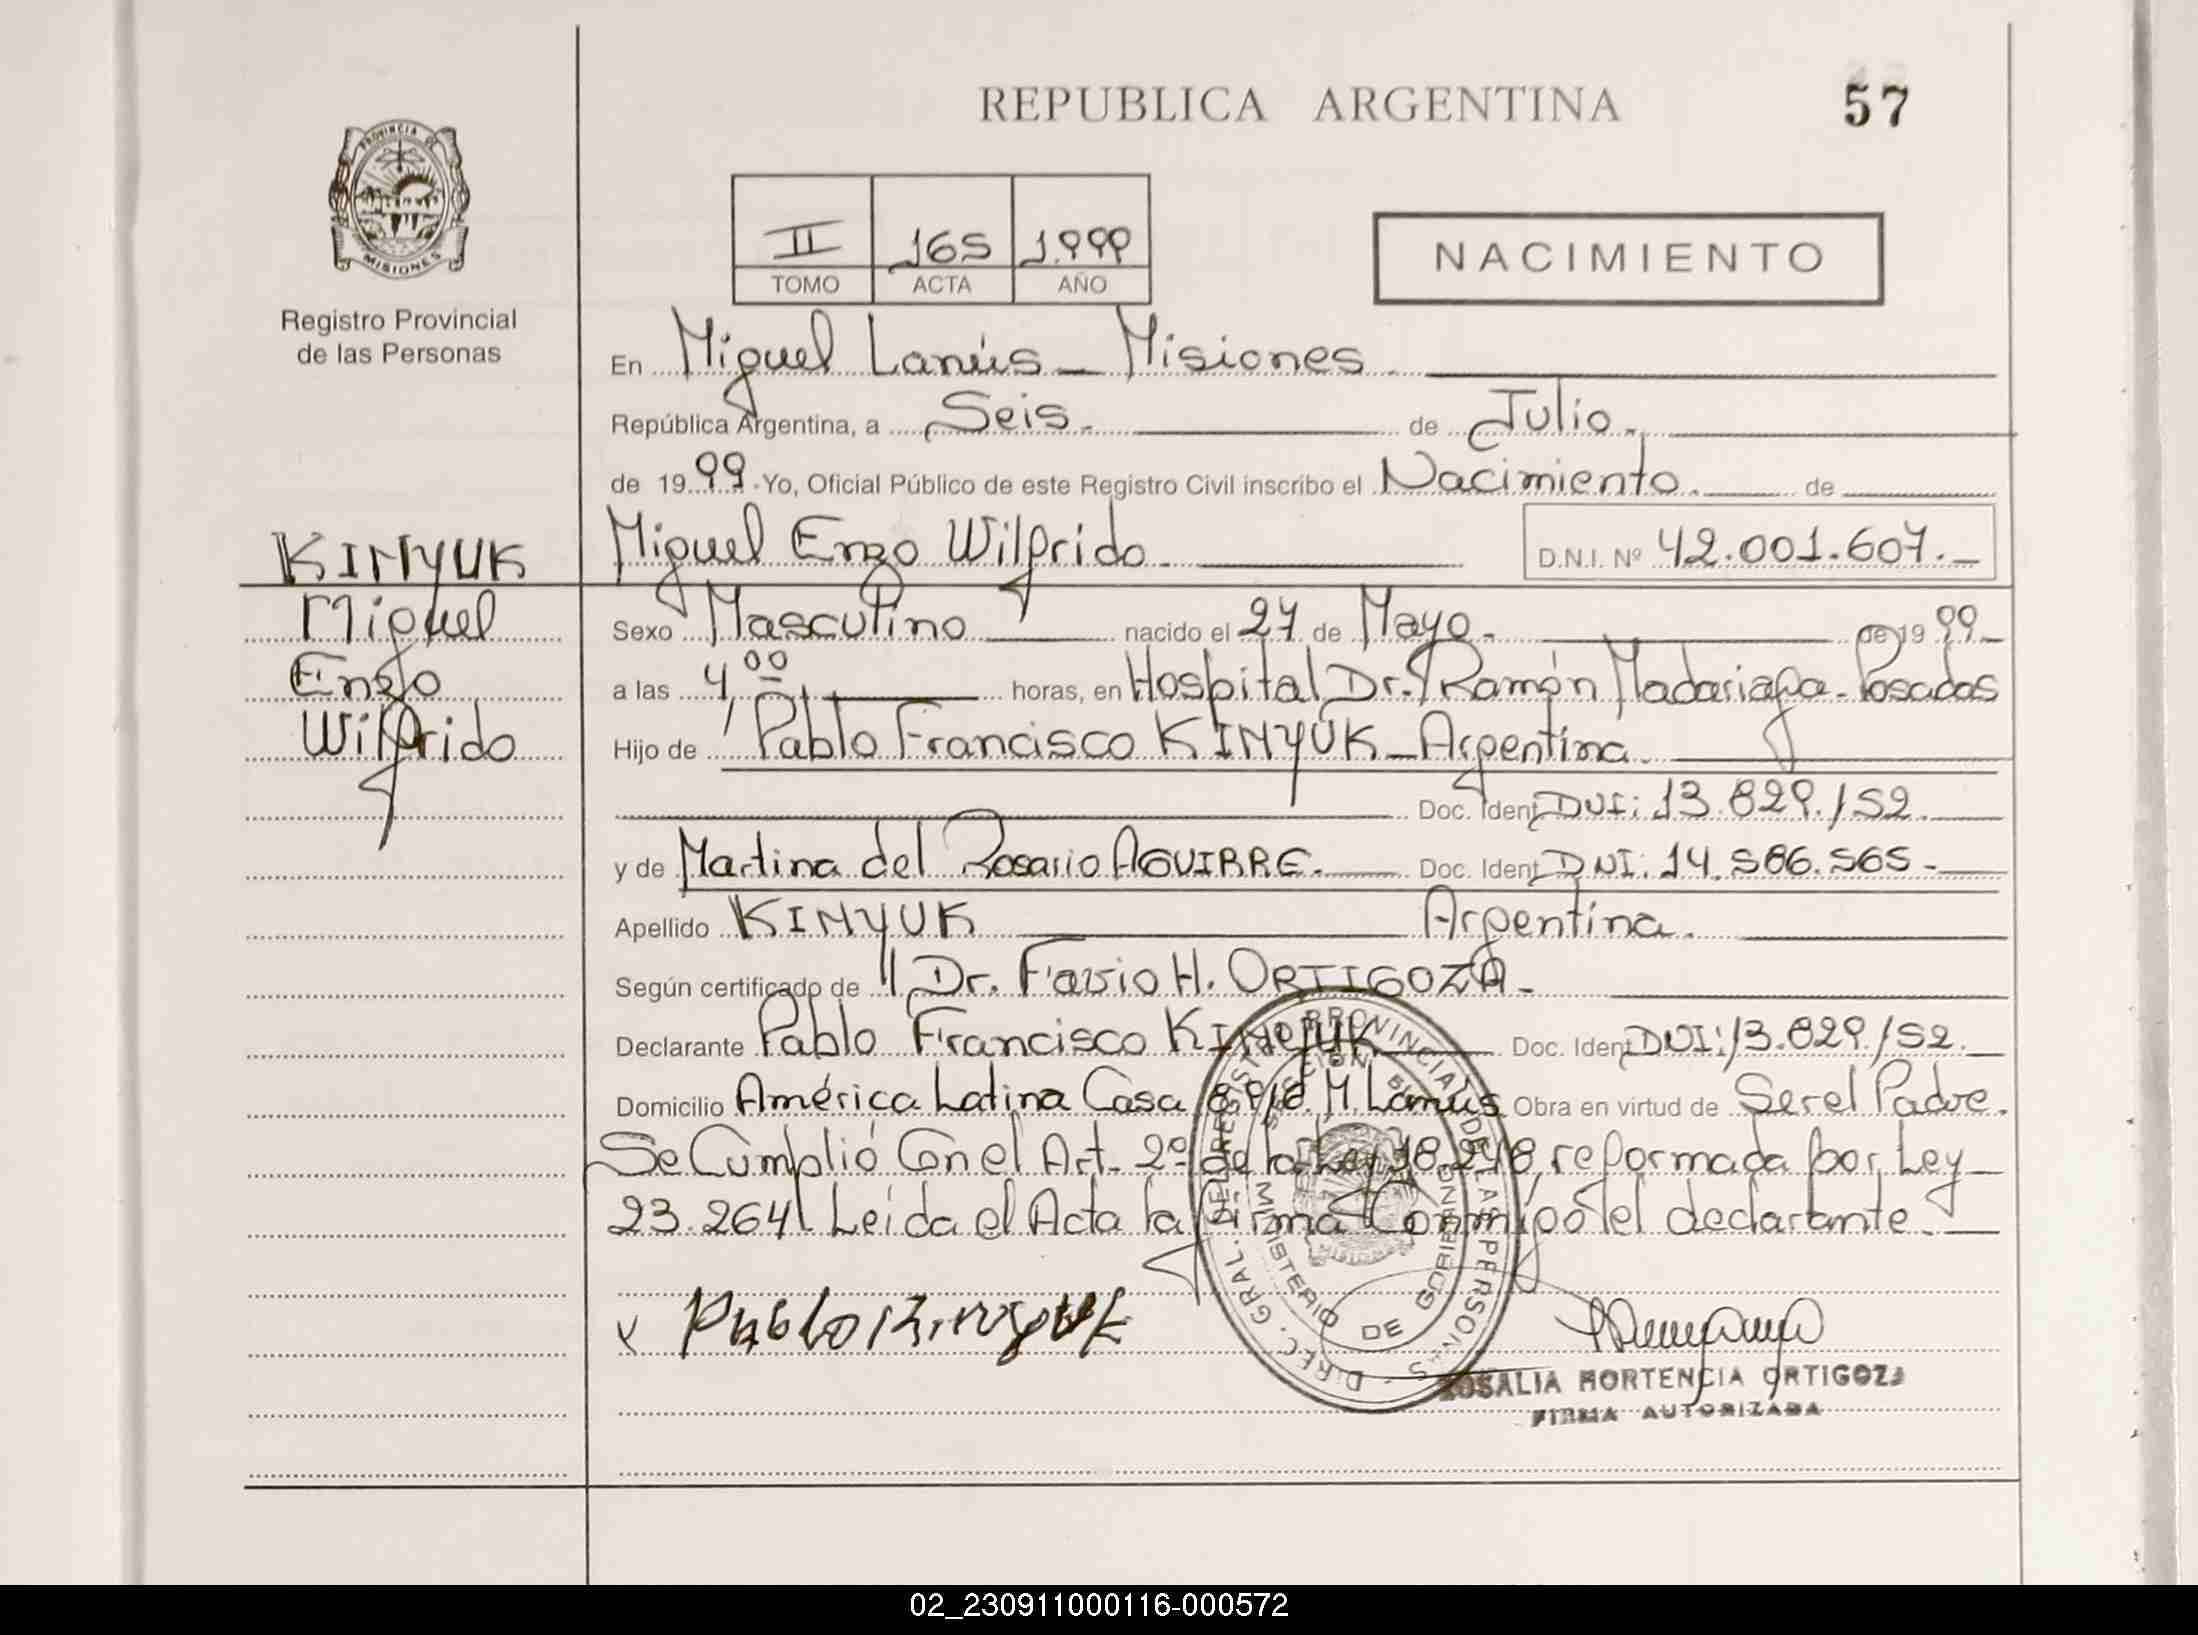 REPUBLICA ARGENTINA
57
PROVINCIA DE
MISIONES
Registro Provincial
de las Personas
II 165 1.999
TOMO ACTA AÑO
NACIMIENTO
En Miguel Lanús - Misiones
República Argentina, a Seis. de Julio.
de 1999 - Yo, Oficial Público de este Registro Civil inscribo el Nacimiento. de
KINYUK
Miguel Enzo Wilfrido. D.N.I. Nº 42.001.607.-
Miguel
Enzo
Wilfrido
Sexo Masculino nacido el 27 de Mayo. de 1999
a las 4,00 horas, en Hospital Dr. Ramón Madariaga - Posadas
Hijo de Pablo Francisco KINYUK - Argentina.
Doc. Ident DNI: 13.829.152.
y de Martina del Rosario AGUIRRE. Doc. Ident DNI: 14.586.565.-
Apellido KINYUK Argentina.
Según certificado de Dr. Favio H. ORTIGOZA -
Declarante Pablo Francisco KINYUK Doc. Ident DNI: 13.829.152.
Domicilio América Latina Casa M. Lanús Obra en virtud de Ser el Padre.
Se Cumplió Con el Art. 2º de la Ley 18.248, reformada por Ley
23.264 Leída el Acta la firma Conmigo el declarante.
x Pablo Kinyuk
DIREC. GRAL. DEL REGISTRO PROVINCIAL DE LAS PERSONAS
MINISTERIO DE GOBIERNO
ROSALIA HORTENCIA ORTIGOZA
FIRMA AUTORIZADA
02_230911000116-000572